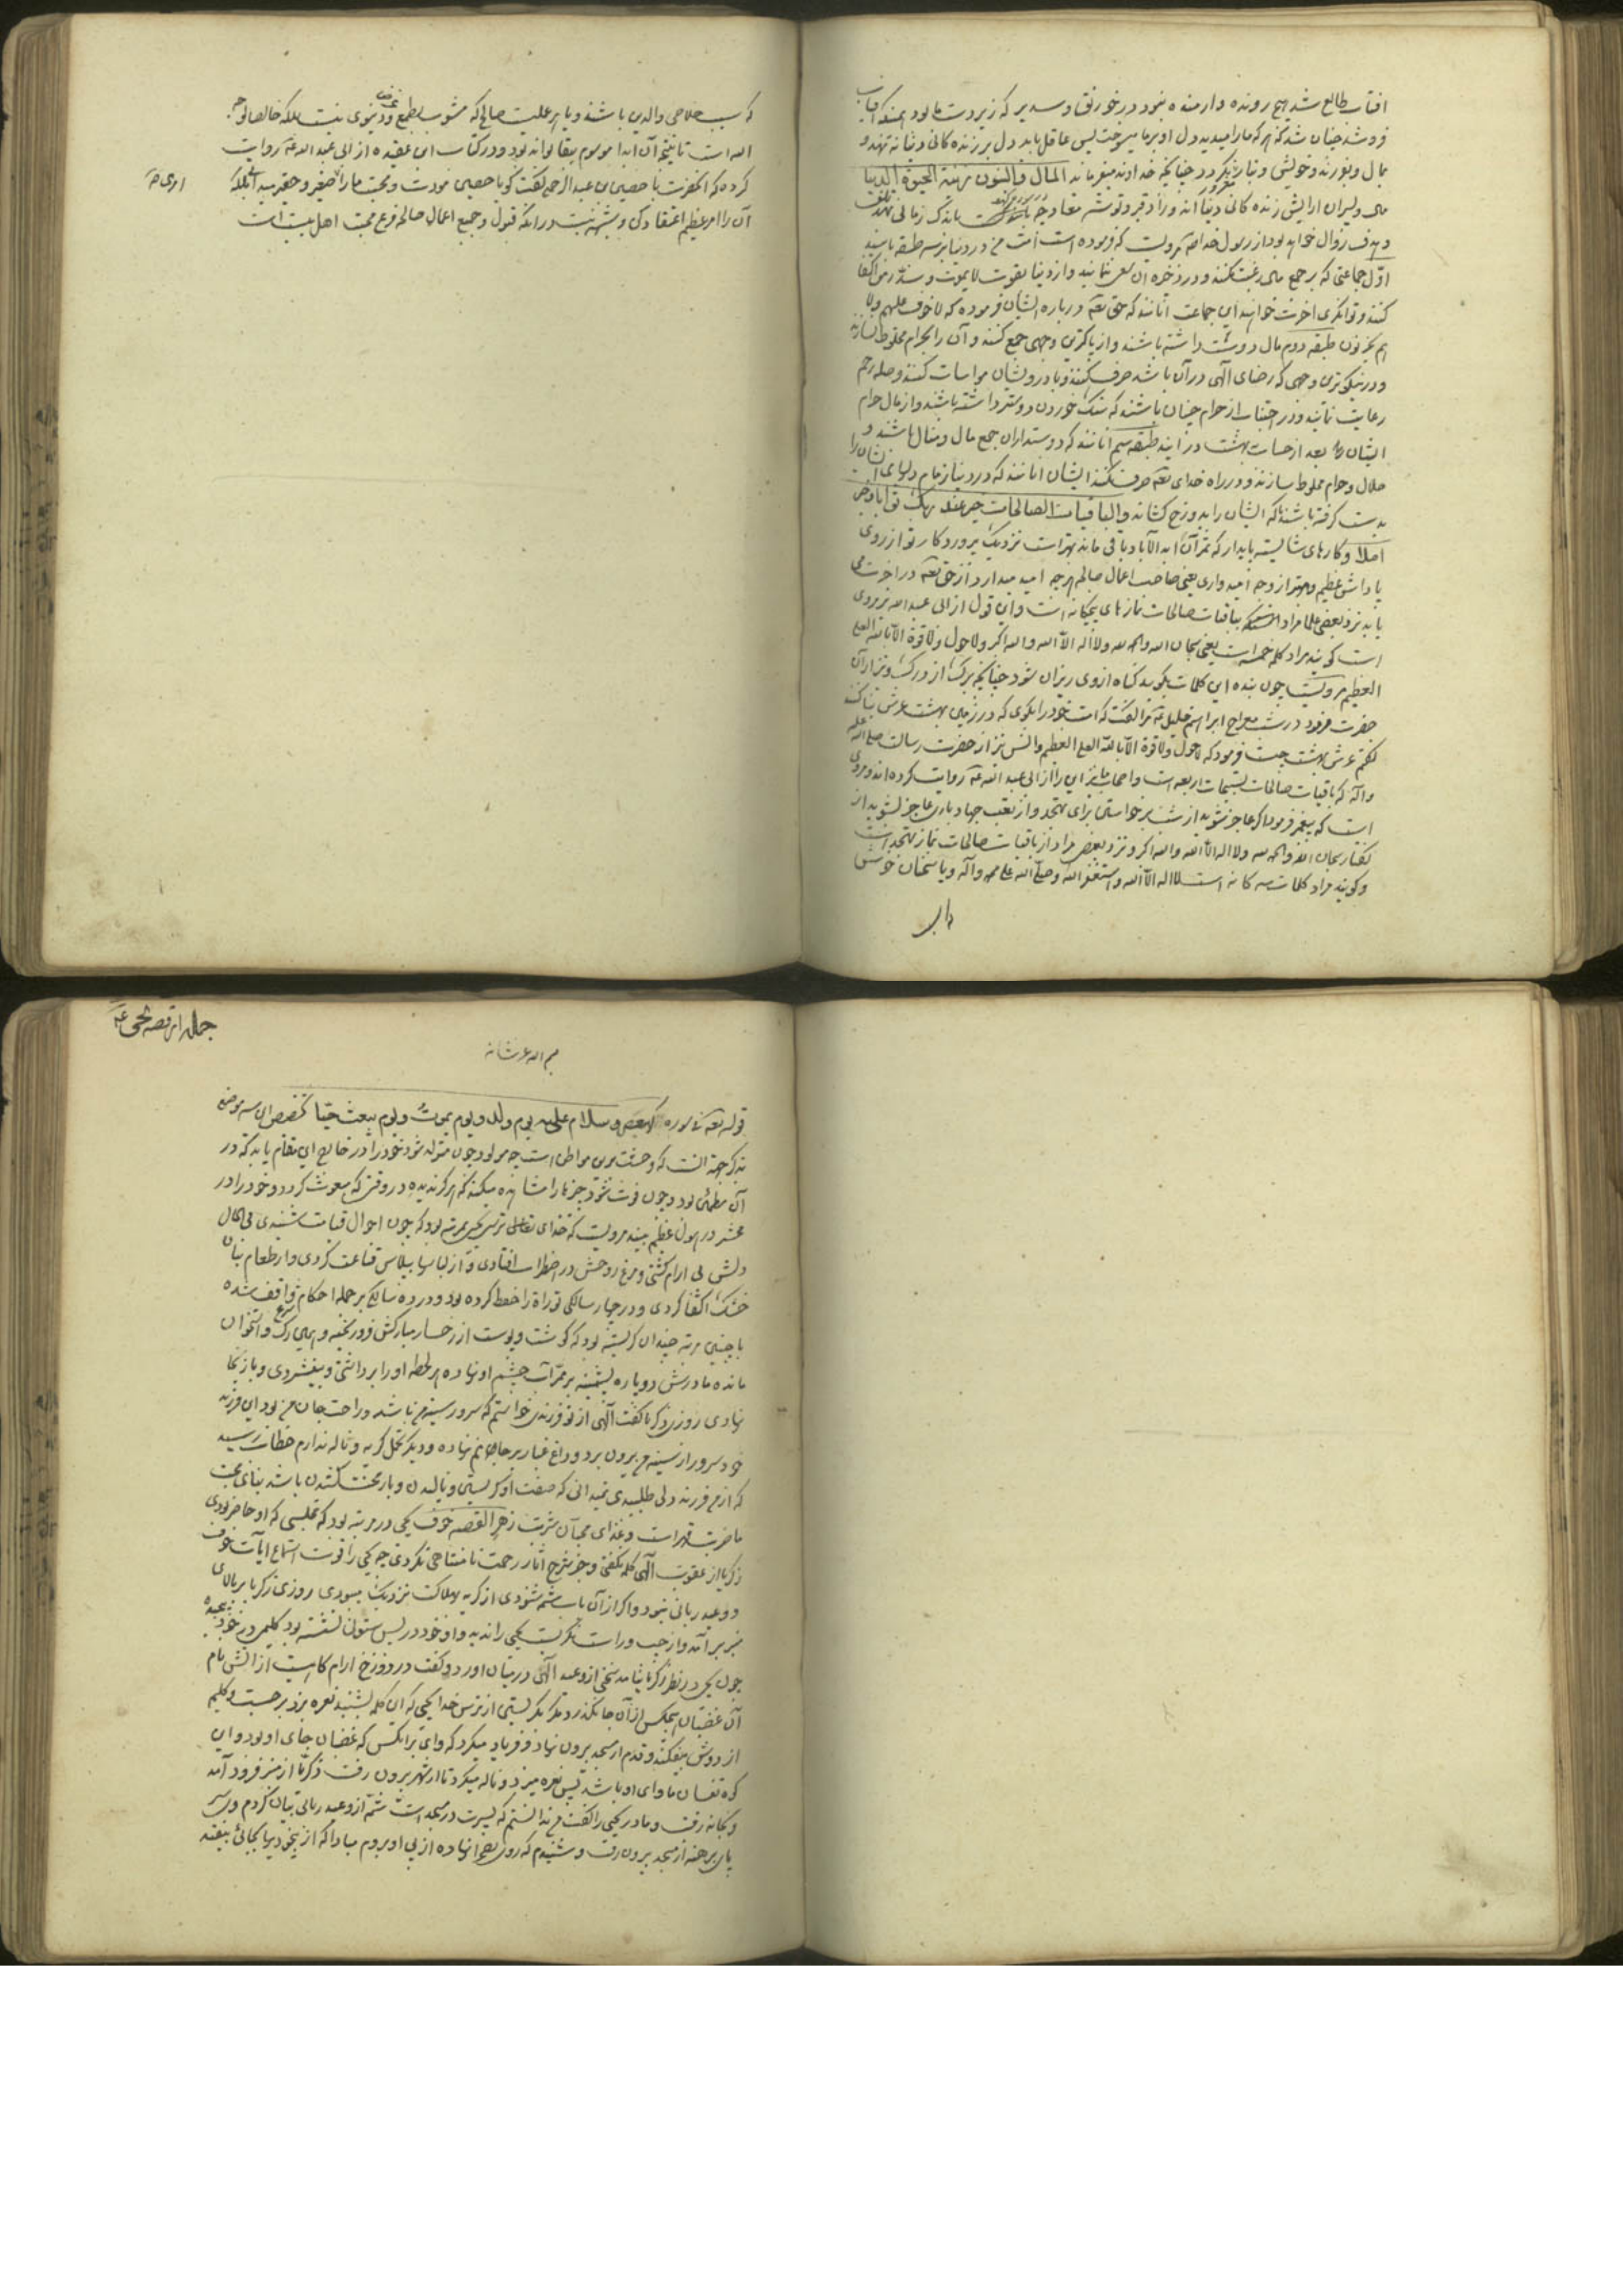 افتاب طالع شد هیچ رونده و ارمنده نبود در خور
فرو شد چنان شد که هر که ما را میدید دل او بر ما میسوخت پس عاقل باید دل بر زنده کانی دنیا نه نهد و
بمال و فرزند و خویش و تبار چنانچه خداوند میفرماید المال والبنون زینة الحیوة الدنیا
مال و پسران ارایش زنده کانی دنیا اند و زاد قبر و توشه معاد باندک زمانی
و هدف زوال خواهد بود از رسول خدا مرویست که فرموده است امت من در دنیا بر سه طبقه باشند
اوّل جماعتی که بر جمع مال رغبت نکنند و در ذخیره ان سعی ننمایند و از دنیا بقوت لا یموت و سدّ رمق اکتفا
کنند و توانگری اخرت خواهند این جماعت انانند که حق تعه درباره ایشان فرموده که لا خوف علیهم ولا
هم یحزنون طبقه دوم مال دوست داشته باشند و از پاکترین وجهی جمع کنند و آن را بحرام مخلوط نسازند
و در نیکوترین وجهی که رضای الهی در آن باشد صرف کنند و با درویشان مواسات کنند و صله رحم
رعایت نمایند و در اجتناب از حرام چنان باشند که سنک خوردن دوستر داشته باشند و از مال حرام
ایشان بعد از حساب بهشت در ایند طبقه سیم آنانند که دوستداران جمع مال و منال باشند و
حلال و حرام مخلوط سازند و در راه خدای تعه صرف نکنند ایشان انانند که در دنیا زمام دلهای ایشان را
بدست گرفته باشند تا که ایشان را بدوزخ کشانند والباقیات الصالحات خیر عند ربک ثوابا وخیر
املا و کارهای شایسته پایدار که ثمر آن ابد الآباد باقی ماند بهتر است نزدیک پروردکار تو از روی
پاداش عظیم و بهتر از وجه امیدواری یعنی صاحب اعمال صالح هر چه امید میدارد از حق تعه در اخرت می
یابد نزد بعضی علما مراد بباقیات صالحات نمازهای پنجکانه است و این قول از ابی عبد الله مروی
است کویند مراد کلمه خمسه است یعنی سبحان الله والحمد لله ولا اله الا الله والله اکبر ولا حول ولا قوة الا بالله العلی
العظیم مرویست چون بنده این کلمات بکوید کناه از وی ریزان شود چنانچه برک از درخت
حضرت فرمود در شب معراج ابراهیم خلیل مرا کفت که امت خود را بکوی که در زمین بهشت غرس
کفتم غرس بهشت چیست فرمود که لا حول ولا قوة الا بالله العلی العظیم وانس نیز از حضرت رسالت صلی الله علیه
وآله که باقیات صالحات تسبیحات اربعه است و اصحاب ما نیز این را از ابی عبد الله روایت کرده اند و مروی
است که پیغمبر فرمود اکر عاجز شوید از شب برخواستن برای تهجد و از تعب جهاد عاجز نشوید از
کفتار سبحان الله والحمد لله ولا اله الا الله والله اکبر و نزد بعضی مراد از باقیات صالحات نماز تهجد است
و کویند مراد کلمات سه کانه است لا اله الا الله واستغفر الله وصلی الله علی محمد وآله و یا سخنان خوش

که سبب خلاصی والدین باشند و یا هر عملیست صالح که مشوب بطمع و غرض دنیوی نیست بلکه خالصا لوجه
الله است تا نتیجه آن ابدا موسوم ببقا تواند بود و در کتاب ابن عقده از ابی عبد الله روایت
کرده که انحضرت با حصین بن عبد الرحمن کفت که یا حصین مودت و محبت ما را صغیر و حقیر مپندار بلکه
آن را امر عظیم اعتقاد کن و شبهه نیست در انکه قبول و جمیع اعمال صالحه فرع محبت اهل بیت است

جمله از قصه یحیی
بسم الله عز شانه
قوله تعه فی سوره کهیعص وسلام علیه یوم ولد ویوم یموت ویوم یبعث حیّا تخصیص این سه موضع
بذکر جهة انست که وحشت ترین مواطن است چه مولود چون متولد شود خود را در خارج این مقام یابد که در
آن مطمئن بود و چون فوت شود چیزها را مشاهده میکند که هرکز ندیده و در وقتی که مبعوث کردد خود را در
محشر در هول عظیم بیند مرویست که خدای تعالی ترس یحیی بمرتبه بود که چون احوال قیامت شنیدی فی الحال
دلش بی ارام کشتی و مرغ روحش در اضطراب افتادی و از لباسها بپلاس قناعت کردی و از طعام بنان
خشک اکتفا کردی و در چهار سالکی توراة را حفظ کرده بود و در ده سالکی بر جمله احکام شرع واقف شده
با چنین مرتبه چندان کریسته بود که کوشت و پوست از رخسار مبارکش فرو ریخته و همین رک و استخوان
مانده مادرش دو پاره پشمینه بر ممرّ آب چشم او نهاده هر لحظه او را برداشتی و بیفشردی و باز بجا
نهادی روزی زکریا کفت الهی از تو فرزندی خواستم که سرور سینه من باشد و راحت جان من بود این فرزند
خود سرور از سینه من بیرون برد و داغ غبار بر جانم نهاده و دیکر تحمل کریه و ناله ندارم خطاب رسید
که از من فرزند ولی طلبیدی نمیدانی که صفت او کریستن و نالیدن و بار محنت کشیدن باشد بنای محبت
ما ضربت قهر است و غذای محبان شربت زهر القصه خوف یحیی در مرتبه بود که مجلسی که او حاضر بودی
زکریا از عقوبت الهی کلمه نکفتی و جز شرح اثار رحمت نامتناهی نکردی چه یحیی را قوت استماع ایات خوف
و وعید ربانی نبود و اکر از آن باب شمه شنودی از کریه بهلاکت نزدیک میبودی روزی زکریا بر بالای
منبر بر آمد و از چپ و راست نکریست یحیی را ندید و او خود در پس ستون نشسته بود کلیمی در خود پیچیده
چون یحیی در نظر زکریا نیامد سخنی از وعید الهی در میان اورد و کفت در دوزخ ارام کاهیست از اتش نام
آن غضبان هیچکس از آن جا نکذرد مکر بکریستن از ترس خدا یحیی که این کلمه بشنید نعره بزد برجست و کلیم
از دوش بیفکند و قدم از مسجد بیرون نهاد و فریاد میکرد که وای بر انکس که غضبان جای او بود و این
کوه تفسان ماوای او باشد پس نعره میزد و ناله میکرد تا از شهر بیرون رفت زکریا از منبر فرود آمد
و بخانه رفت و مادر یحیی را کفت من ندانستم که پسرت در مسجد است شمّه از وعید ربانی بیان کردم وی سر
پای برهنه از مسجد بیرون رفت و شنیدم که روی بصحرا نهاده از پی او بروم مبادا که از بیخودیها بجائی بیفتد